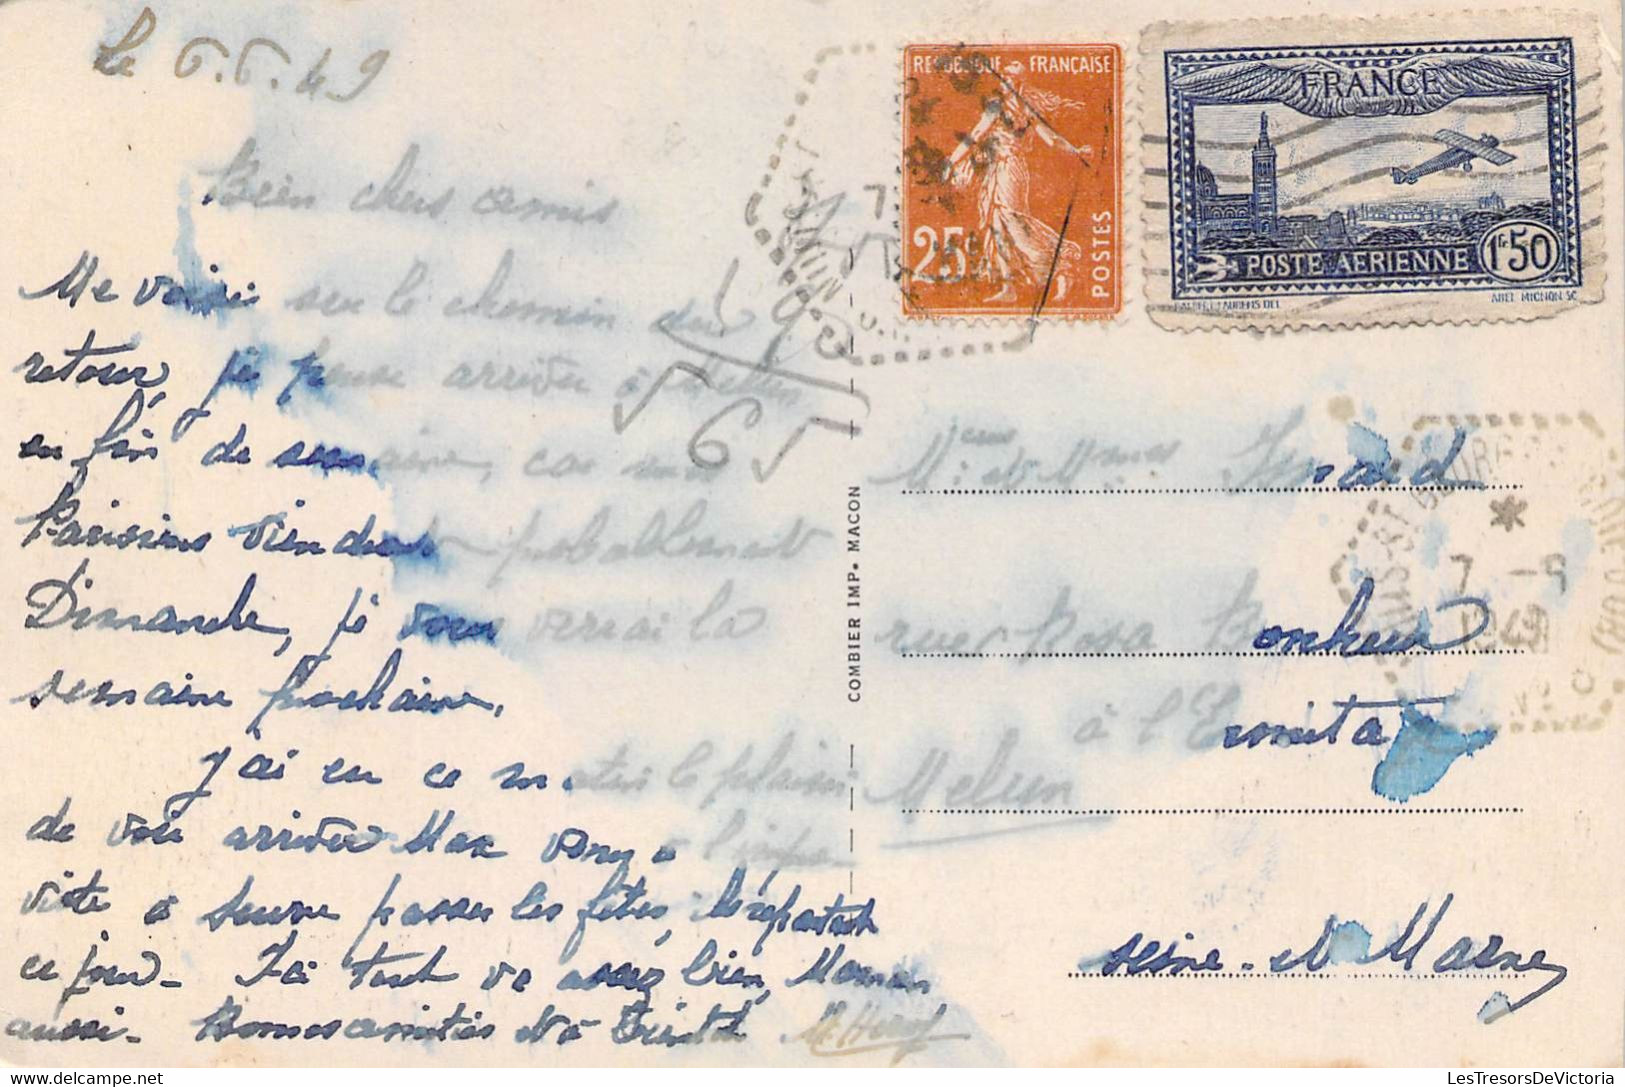 le 6.6.49
Bien chers amis
Me voici sur le chemin du
retour, je pense arriver à Melun
en fin de semaine, car mes
Parisiens viendront probablement
Dimanche, je vous verrai la
semaine prochaine.
J'ai eu ce matin le plaisir
de voir arriver Max venu à
vite à Seurre passer les fêtes, ils repartent
ce jour - Ici tout va assez bien, Maman
aussi - Bonnes amitiés et à bientôt
REPUBLIQUE FRANÇAISE
25c
POSTES
FRANCE
POSTE AÉRIENNE
1f.50
ABEL MIGNON SC
COMBIER IMP. MACON
565
Mr et Mme Isnard
rue Rosa Bonheur
à l'Ermitage
Melun
Seine-et-Marne
7 -6
1949
LesTresorsDeVictoria
LesTresorsDeVictoria.com